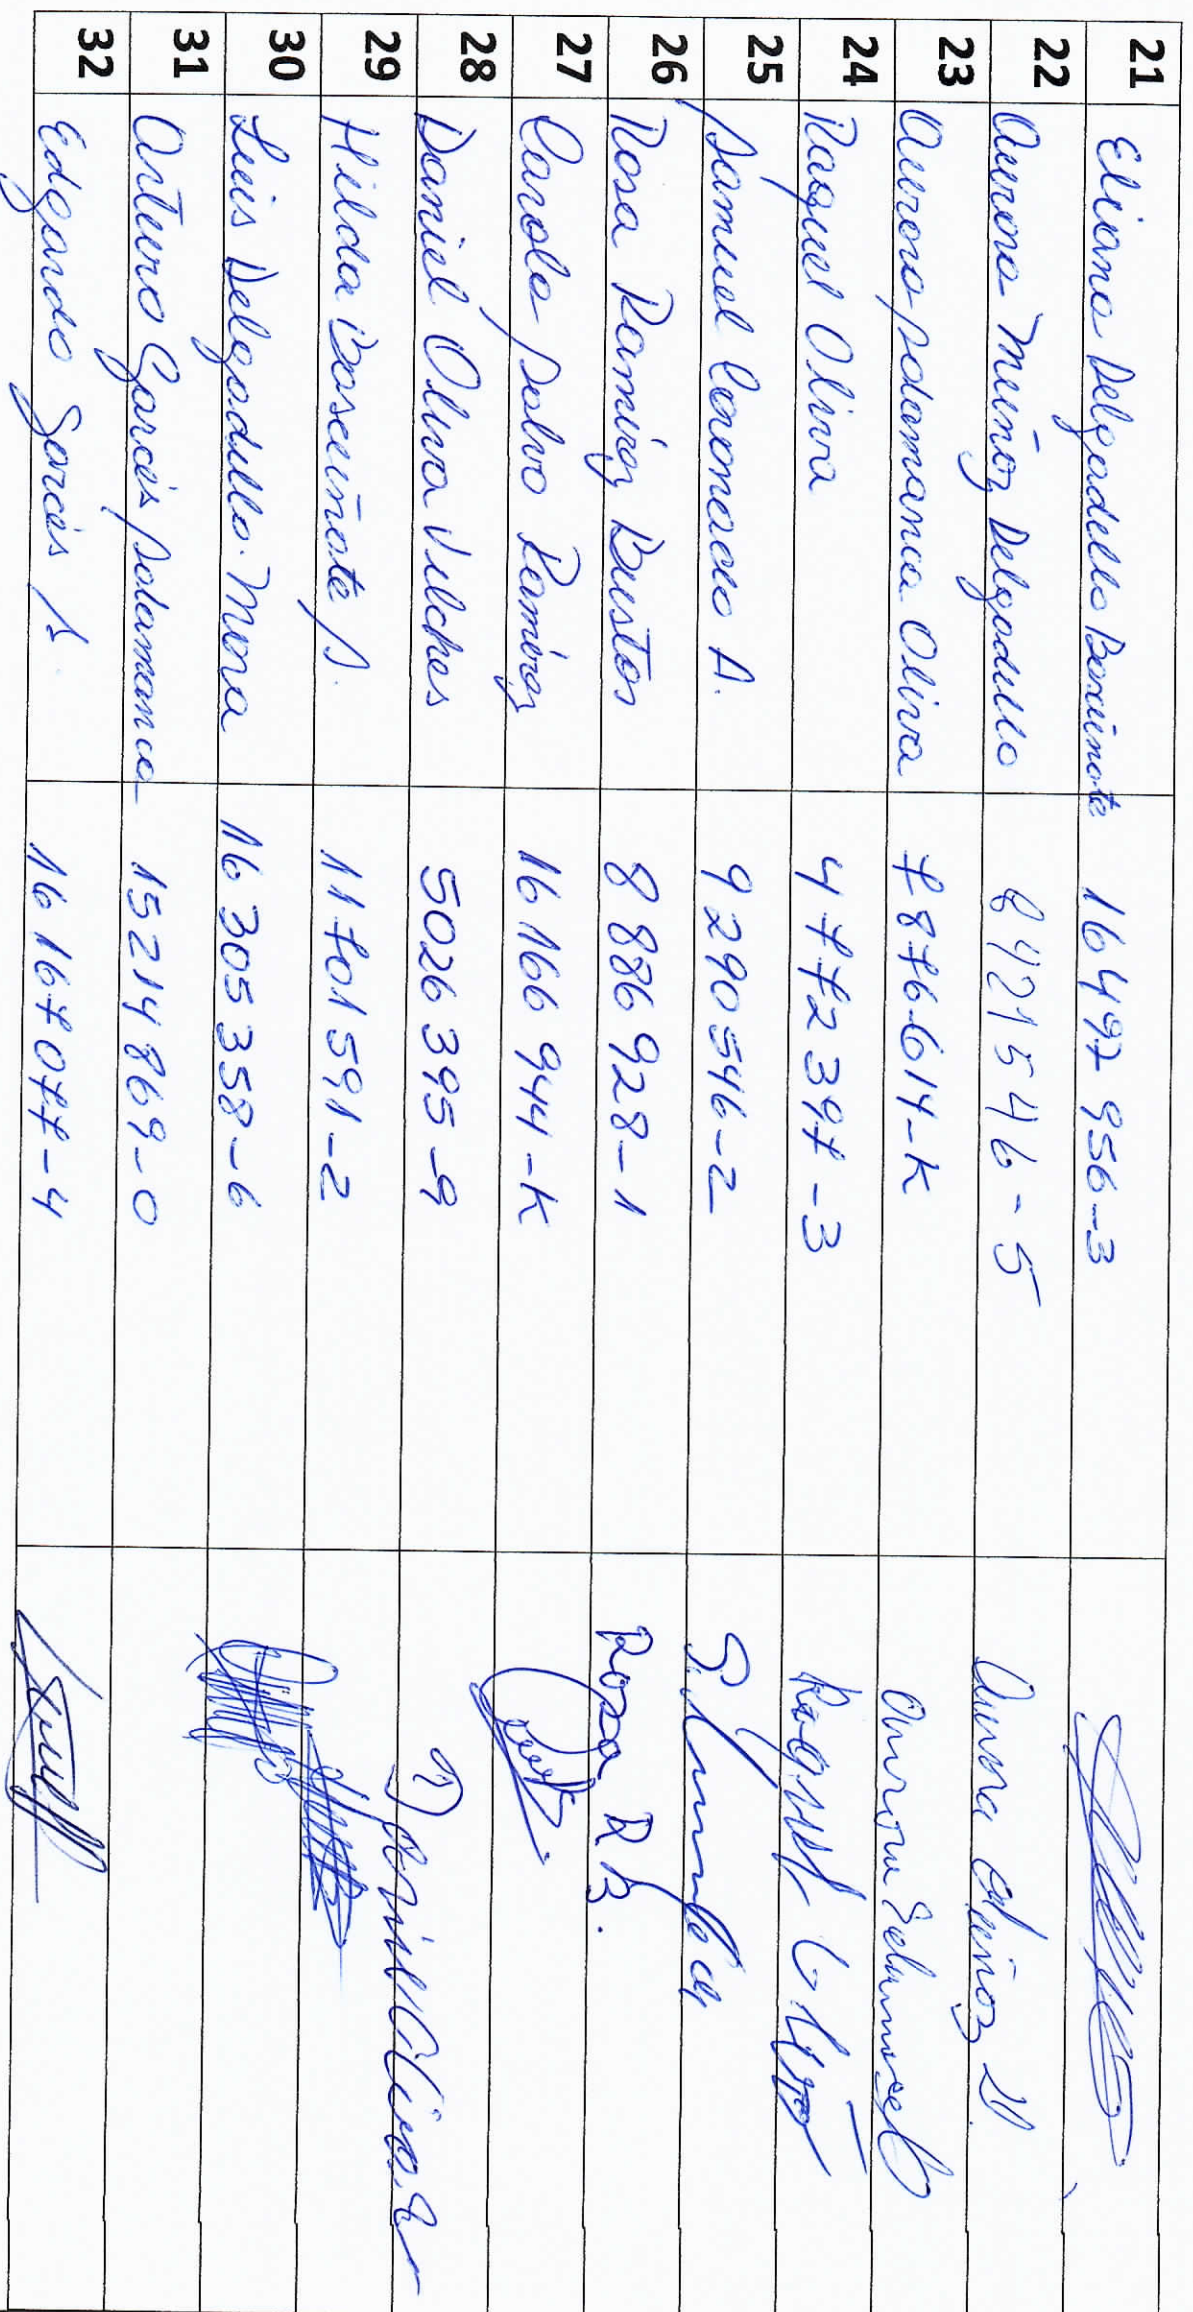 21 Eliana Delgadillo Bascuñate 16497956-3
22 Aurora Muñoz Delgadillo 8421546-5 Aurora Muñoz D.
23 Aurora Salamanca Oliva 7876614-K Aurora Salamanca
24 Raquel Oliva 4772397-3 Raquel
25 Samuel Coronado A. 9290546-2
26 Rosa Ramírez Bustos 8886928-1 Rosa R B.
27 Carola Salvo Ramírez 16166944-K
28 Daniel Oliva Vilches 5026395-9 Daniel Oliva
29 Hilda Bascuñate S. 11701591-2
30 Luis Delgadillo Mora 16305358-6
31 Arturo Garcés Salamanca 15214869-0
32 Edgardo Garcés S. 16167077-4